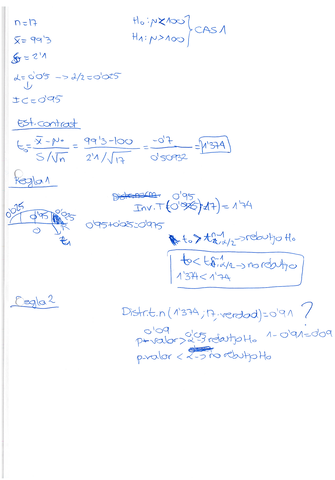 n=17
x̄=99'3
S=2'1
α=0'05 → α/2=0'025
IC=0'95
H₀: μ≤100
H₁: μ>100
CAS 1
Est.contrast
t₀ = x̄-μ₀ / S/√n = 99'3-100 / 2'1/√17 = -0'7 / 0'50932 = 1'374
Regla 1
0'025 0'95 0'025
0
0'95+0'025=0'975
0'95
Inv.T( ;17)=1'74
→ rebutjo H₀
→ no rebutjo
1'374<1'74
Regla 2
Distr.t.n (1'374;17;verdad)=0'91 ?
0'09 0'05
1-0'91=0'09
p-valor > α → rebutjo H₀
p-valor < α → no rebutjo H₀